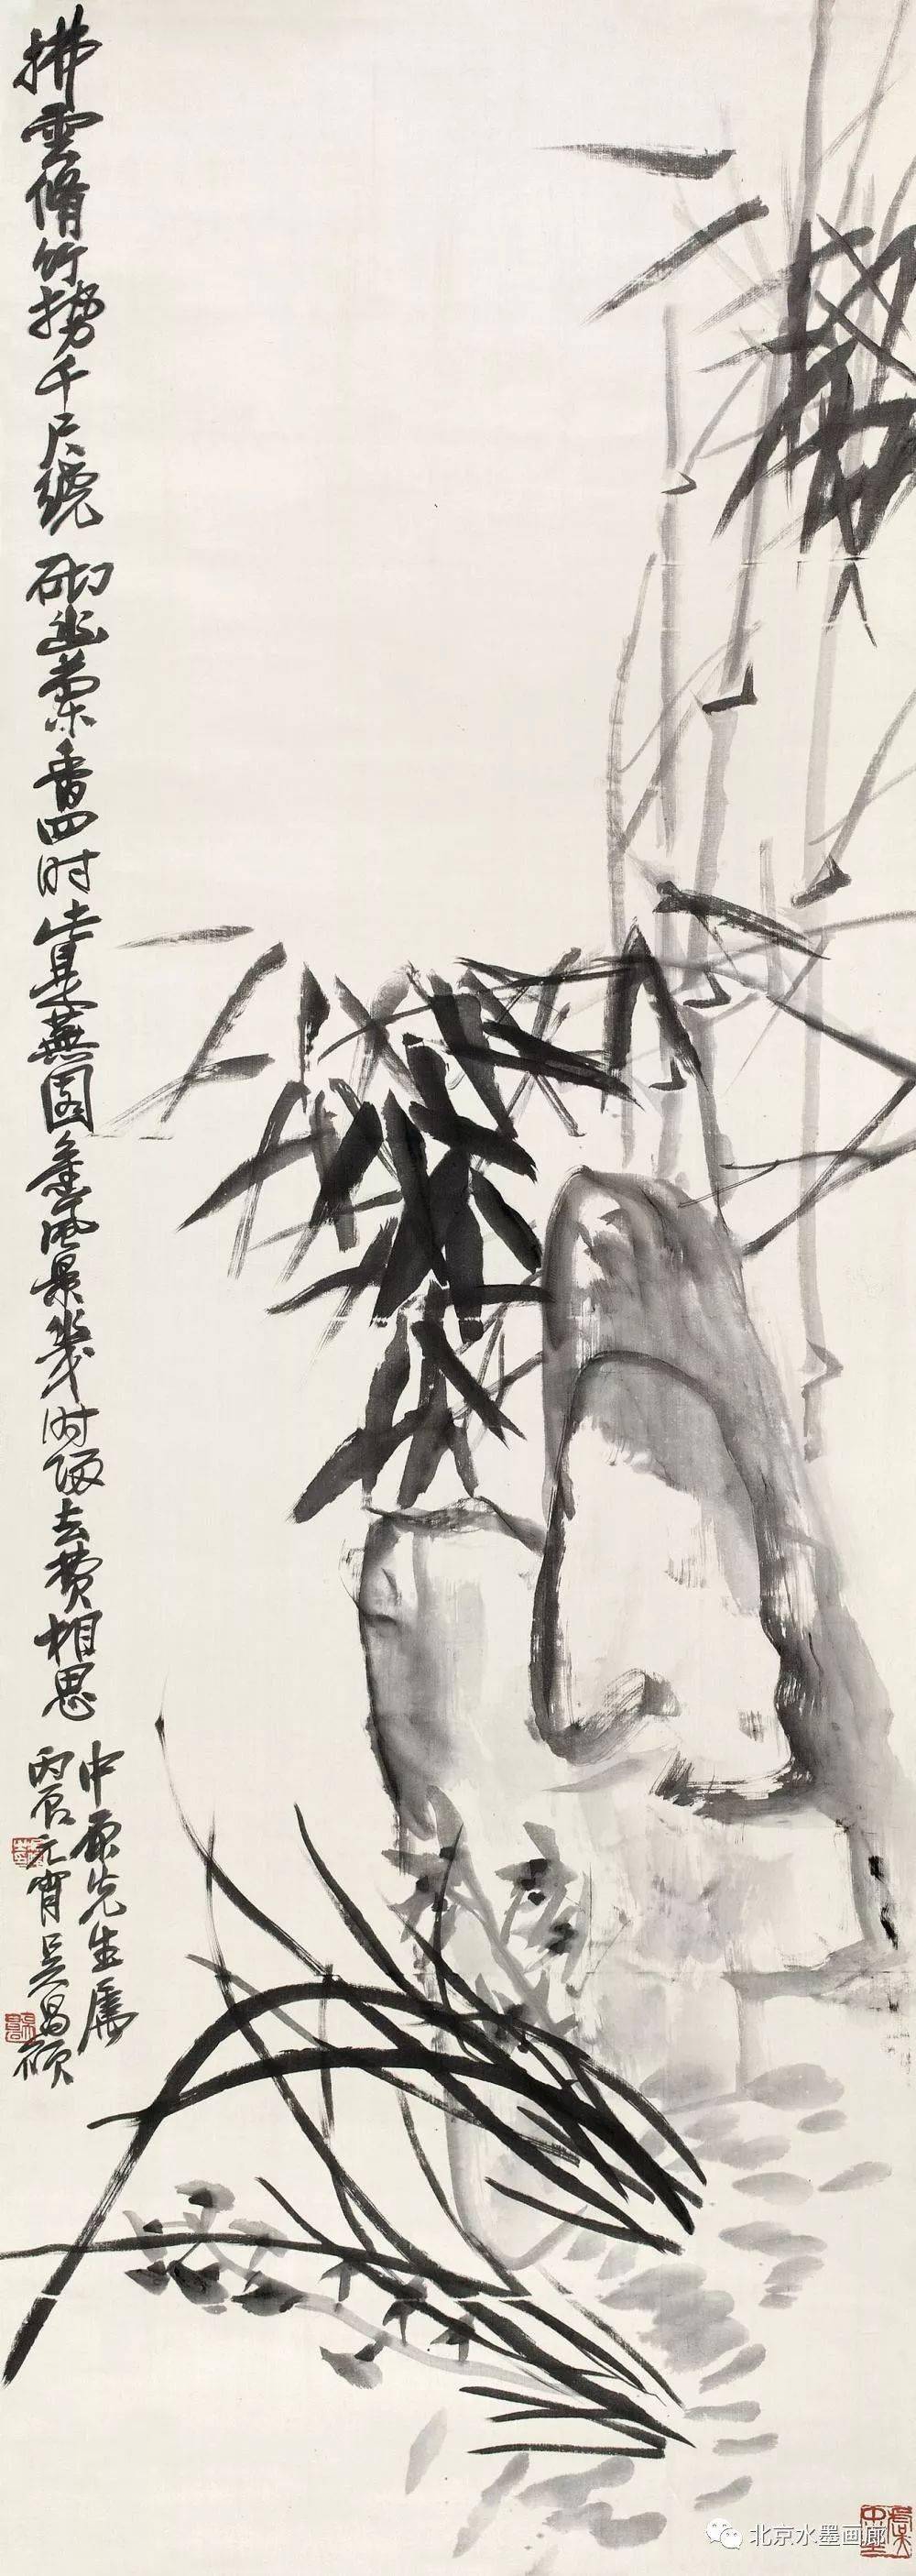 拂雲脩竹勢千尺繞砌幽蘭香四時皆是蕪園舊風景幾時歸去費相思
中原先生屬
丙辰元宵吳昌碩
北京水墨画廊